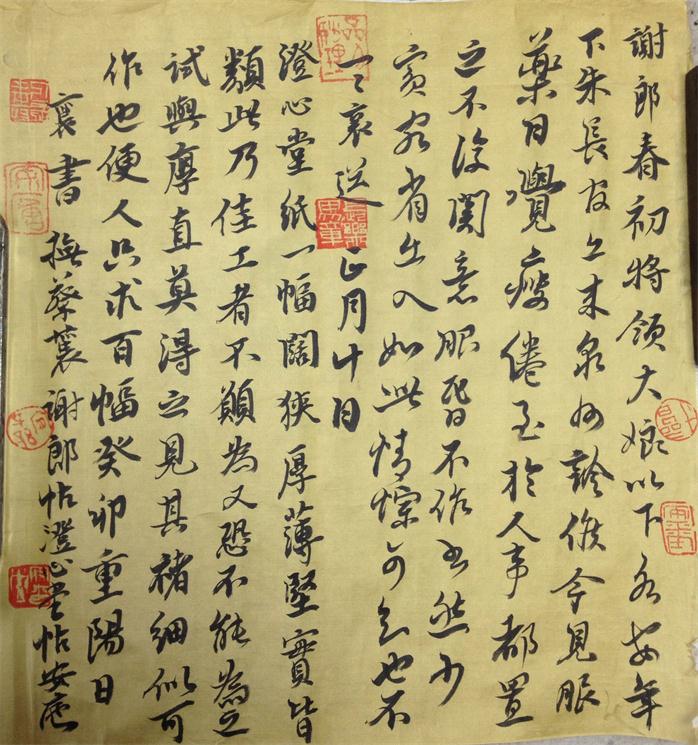 謝郎春初將領大娘以下各安年
下朱長官亦來泉州診候今見服
藥日覺瘦倦至於人事都置
之不復關意眼昏不作書然少
賓客省出入如此情悰可知也不
一一襄送正月十日
澄心堂紙一幅闊狹厚薄堅實皆
類此乃佳工者不願為又恐不能為之
試與厚直莫得之見其楮細似可
作也便人只求百幅癸卯重陽日
襄書 撫蔡襄謝郎帖澄心堂帖安